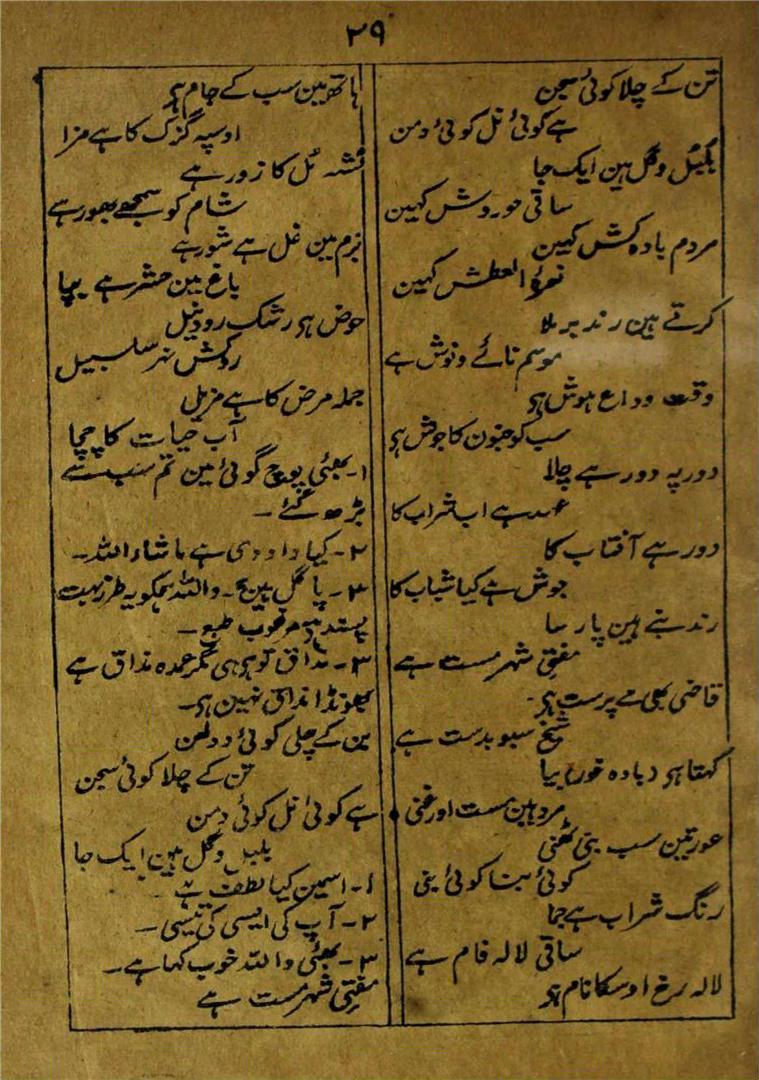 ۳۹
تن کے چلا کوئی سجن
ہے کوئی نل کوئی دمن
بلبل و گل ہین ایک جا
ساقی حوروش کہین
مردم بادہ کش کہین
نعرۂ العطش کہین
کرتے ہین رند برملا
موسم نائے و نوش ہے
وقت وداع ہوش ہی
سب کو جنون کا جوش ہی
دور پہ دور ہے چلا
عہد ہے اب شراب کا
دور ہے آفتاب کا
جوش ہے کیا شباب کا
رند بنے ہین پارسا
مفتی شہر مست ہے
قاضی بھی مے پرست ہی
شیخ سبو بدست ہے
کہتا ہی (بادہ خور) بیا
مرد ہین مست اور غنی
عورتین سب بنی ٹھنی
کوئی بنا کوئی بنی
رنگ شراب ہے جما
ساقی لالہ فام ہے
لالہ رخ اوسکا نام ہی
ہاتھ مین سب کے جام ہی
اوسپہ گزک کا ہے مزا
نشہ مل کا زور ہے
شام کو سمجھے بھور ہے
بزم مین غل ہے شور ہے
باغ مین حشر ہے بپا
حوض ہی رشک رود نیل
روکش نہر سلسبیل
جملہ مرض کا ہے مزیل
آب حیات کا چچا
۱۔ بھئی پوچ گوئی مین تم سب سے
بڑھ گئے۔
۲۔ کیا داودی ہے ماشاء اللہ۔
۳۔ پاگل ہین۔ واللہ ہمکو یہ طرز بہت
پسند ہے مرغوب طبع۔
۳۔ مذاق تو ہی ہی مگر عمدہ مذاق ہے
بھونڈا مذاق نہین ہی۔
بن کے چلی کوئی دولھن
تن کے چلا کوئی سجن
ہے کوئی نل کوئی دمن
بلبل و گل ہین ایک جا
۱۔ اسمین کیا لطف ہے۔
۲۔ آپ کی ایسی کی تیسی۔
۳۔ بھئی واللہ خوب کہا ہے۔
مفتی شہر مست ہے